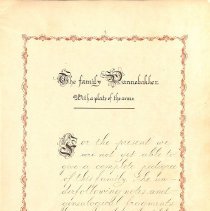 The family Pannebakker.
With a plate of the arms
For the present we
are not yet able to
give a complete pedigree
of this family. The un-
derfollowing notes and
genealogical fragments